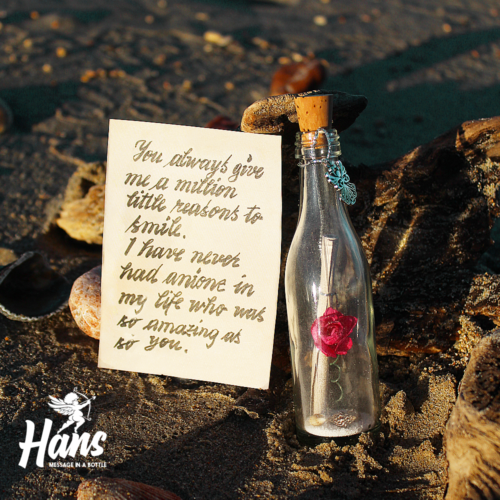 You always give
me a million
little reasons to
smile.
I have never
had anione in
my life who was
so amazing as
so you.
Hans
MESSAGE IN A BOTTLE